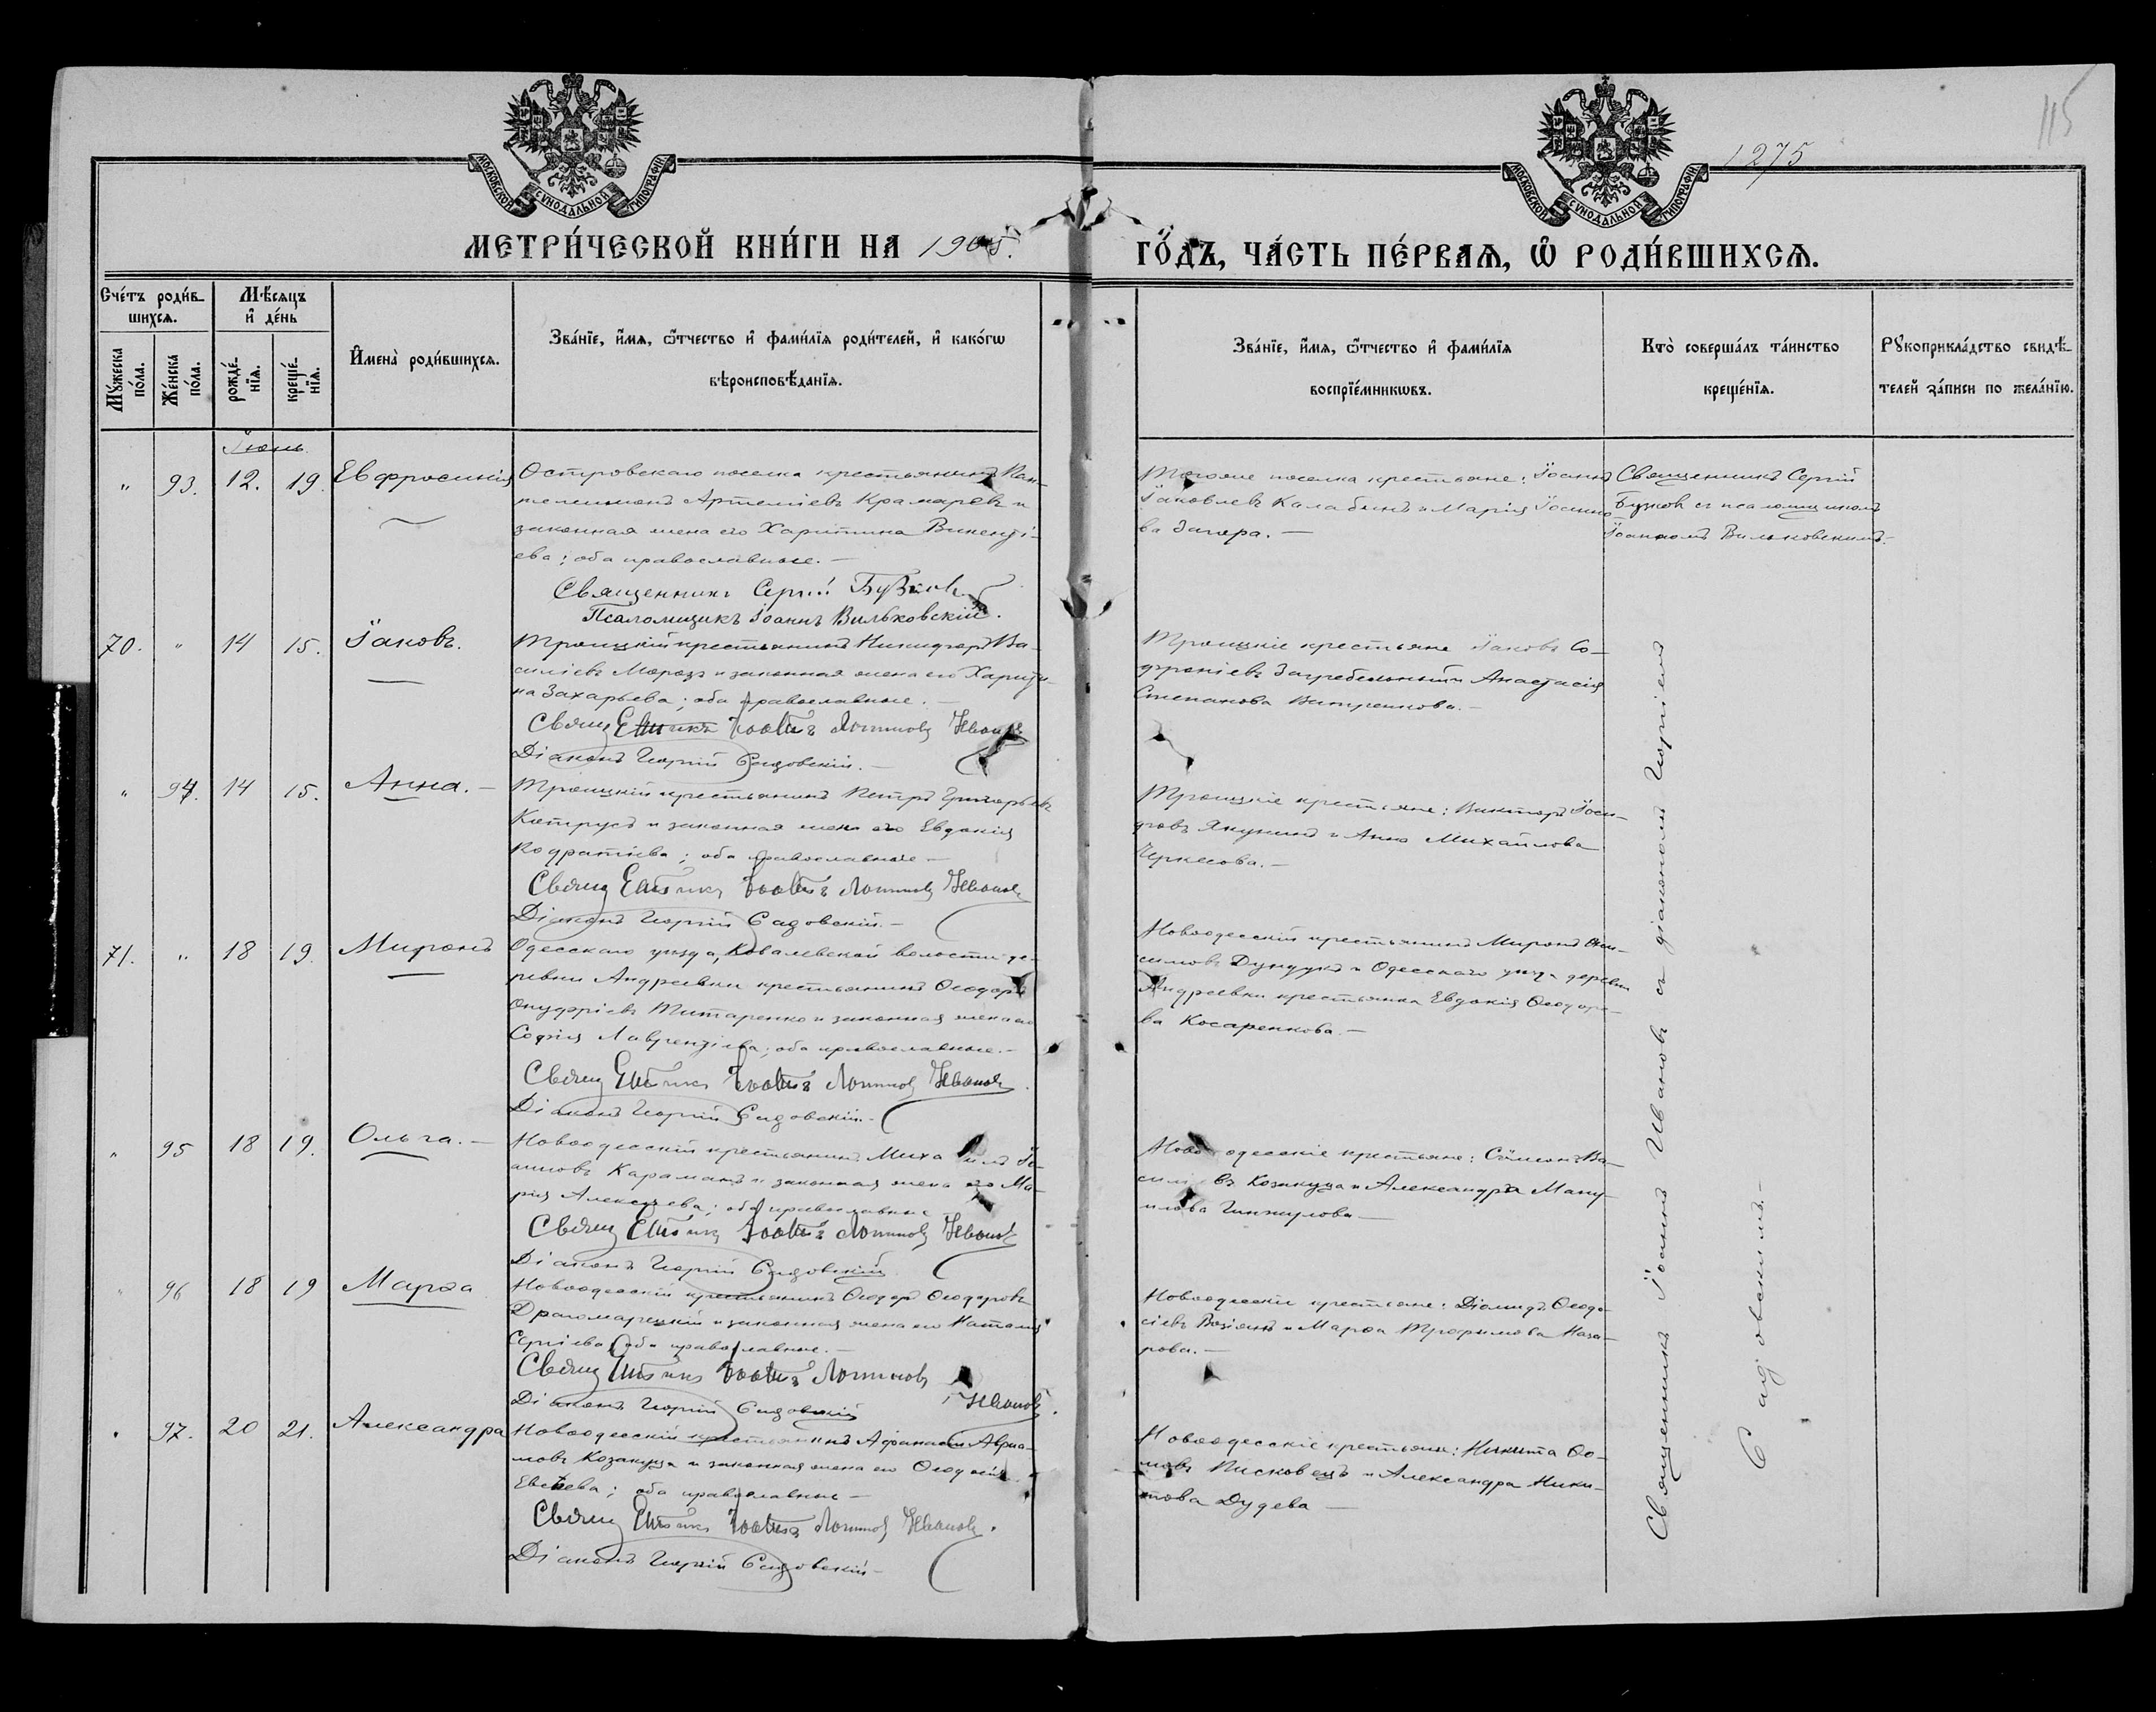 115
1275
МОСКОВСКОЙ СѴНОДАЛЬНОЙ ТИПОГРАФІИ
МОСКОВСКОЙ СѴНОДАЛЬНОЙ ТИПОГРАФІИ
МЕТРИ́ЧЕСКОЙ КНИ́ГИ НА 1905.
ГО́ДЪ, ЧА́СТЬ ПЕ́РВАѦ, Ѡ҆ РОДИ́ВШИХСѦ.
Сче́тъ роди́в-
шихсѧ.
Мꙋ́жеска по́ла.
Же́нска по́ла.
Мѣ́сѧцъ
и҆ де́нь
рожде́-
нїѧ.
креще́-
нїѧ.
И҆мена̀ роди́вшихсѧ.
Зва́нїе, и҆́мѧ, ѻ҆́тчество и҆ фами́лїѧ роди́телей, и҆ како́гѡ
вѣроисповѣ́данїѧ.
Зва́нїе, и҆́мѧ, ѻ҆́тчество и҆ фами́лїѧ
воспрїе́мникѡвъ.
Кто̀ соверша́лъ та́инство
креще́нїѧ.
Рꙋкоприкла́дство свидѣ́-
телей за́писи по жела́нїю.
Іюнь
" 93. 12. 19. Евфросинія
Островскаго поселка крестьянинъ Пан-
телеимонъ Артеміевъ Крамаревъ и
законная жена его Харитина Викенті-
ева; оба православные. —
Священникъ Сергій Бузков
Псаломщикъ Іоаннъ Вильковскій.
Тогоже поселка крестьяне: Іоаннъ
Іаковлевъ Калабинъ и Марія Іоанно-
ва
Священникъ Сергій
Бузков съ псаломщикомъ
Іоанномъ Вильковскимъ.
70. " 14 15. Іаковъ.
Троицкій крестьянинъ Никифоръ Ва-
силіевъ Морозъ и законная жена его Харити-
на Захарьева; оба православные. —
Священникъ Іоаннъ Логиновъ Ивановъ
Діаконъ Георгій Садовскій. —
Троицкіе крестьяне Іаковъ Со-
фроніевъ Загребельный и Анастасія
Степанова Витренкова. —
" 94. 14 15. Анна. —
Троицкій крестьянинъ Петръ Григорьевъ
и законная жена его Евдокія
Кодратіева; оба православные —
Священникъ Іоаннъ Логиновъ Ивановъ
Діаконъ Георгій Садовскій. —
Троицкіе крестьяне: Викторъ Іоси-
фовъ Якунинъ и Анна Михайлова
Черкесова. —
71. " 18 19. Миронъ
Одесскаго уѣзда, Ковалевской волости де-
ревни Андреевки крестьянинъ Ѳеодоръ
Онуфріевъ Титаренко и законная жена его
Софія Лаврентіева; оба православные. —
Священникъ Іоаннъ Логиновъ Ивановъ.
Діаконъ Георгій Садовскій. —
Новоодесскій крестьянинъ Миронъ Они-
симовъ Дундукъ и Одесскаго уѣзда деревни
Андреевки крестьянка Евдокія Ѳеодоро-
ва Косаренкова. —
" 95 18 19. Ольга. —
Новоодесскій крестьянинъ Михаилъ Іо-
анновъ Караманъ и законная жена его Ма-
рія Алексѣева; оба православные
Священникъ Іоаннъ Логиновъ Ивановъ
Діаконъ Георгій Садовскій
Новоодесскіе крестьяне: Сѵмеонъ Ва-
силіевъ Козакуца и Александра Ману-
илова
" 96 18 19 Марѳа
Новоодесскій крестьянинъ Ѳеодоръ Ѳеодоровъ
Драгомарецкій и законная жена его Наталія
Сергіева; оба православные. —
Священникъ Іоаннъ Логиновъ
Ивановъ.
Діаконъ Георгій Садовскій
Новоодесскіе крестьяне: Діомидъ Ѳеодо-
сіевъ и Марѳа Трофимова Наза-
рова. —
97. 20 21. Александра
Новоодесскій крестьянинъ Афанасій Авра-
мовъ Козакуца и законная жена его Ѳеодосія
Евсѣева; оба православные —
Священникъ Іоаннъ Логиновъ Ивановъ.
Діаконъ Георгій Садовскій —
Новоодесскіе крестьяне: Никита Ѳо-
мовъ Писковецъ и Александра Ники-
това Дудева —
Священникъ Іоаннъ Ивановъ съ діакономъ Георгіемъ
Садовскимъ. —